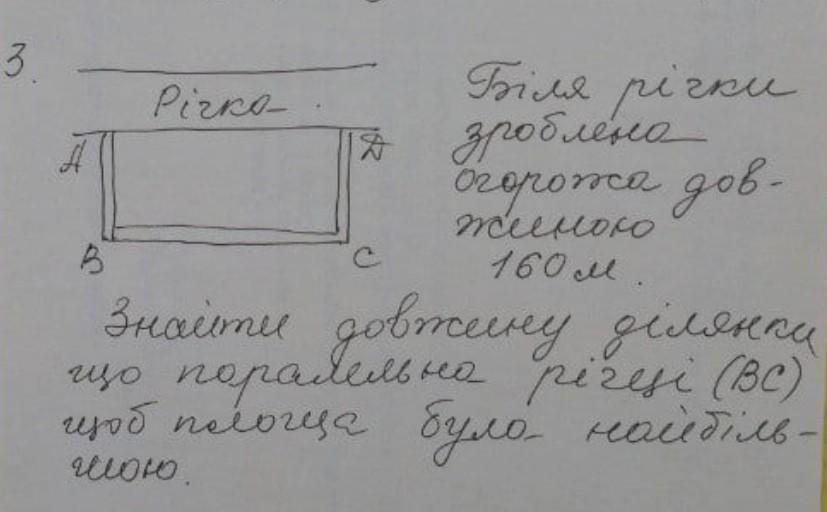 3.
Річка
A
D
B
C
Біля річки
зроблена
огорожа дов-
жиною
160 м.
Знайти довжину ділянки
що паралельна річці (BC)
щоб площа була найбіль-
шою.